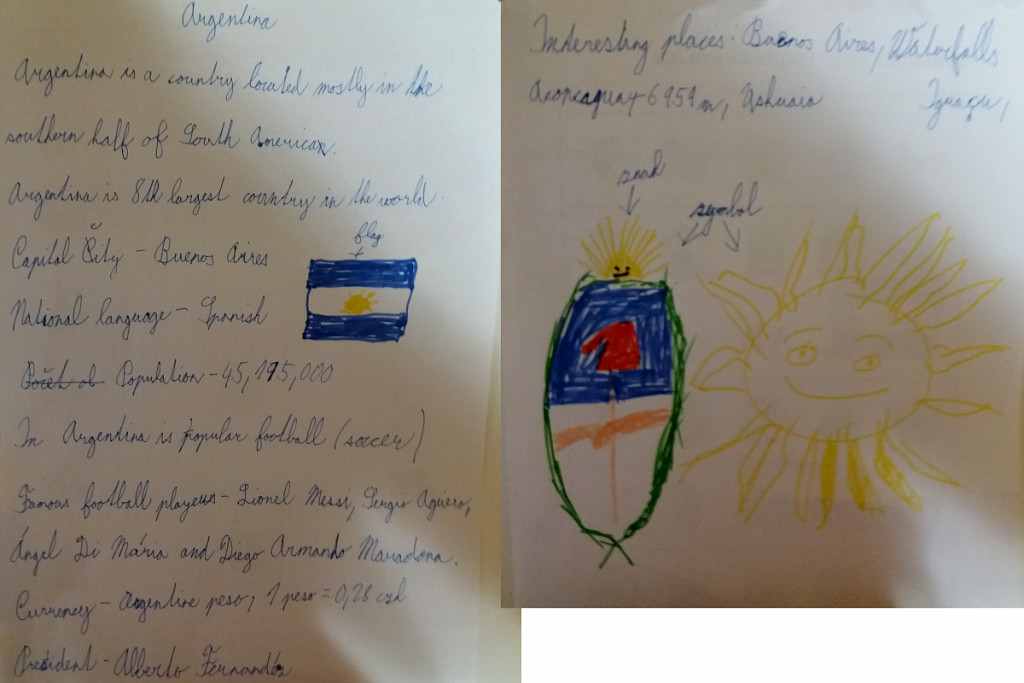 Argentina
Argentina is a country located mostly in the
southern half of South American.
Argentina is 8th largest country in the world.
Capital City – Buenos Aires
flag
National language – Spanish
Počet ob Population – 45,195,000
In Argentina is popular football (soccer)
Famous football players – Lionel Messi, Sergio Agüero,
Ángel Di Mária and Diego Armando Maradona.
Currency – Argentine peso, 1 peso = 0,28 czk
President – Alberto Fernandéz
Interesting places: Buenos Aires, Waterfalls
Iguaçu,
Aconcagua – 6959 m, Ushuaia
znak
symbol